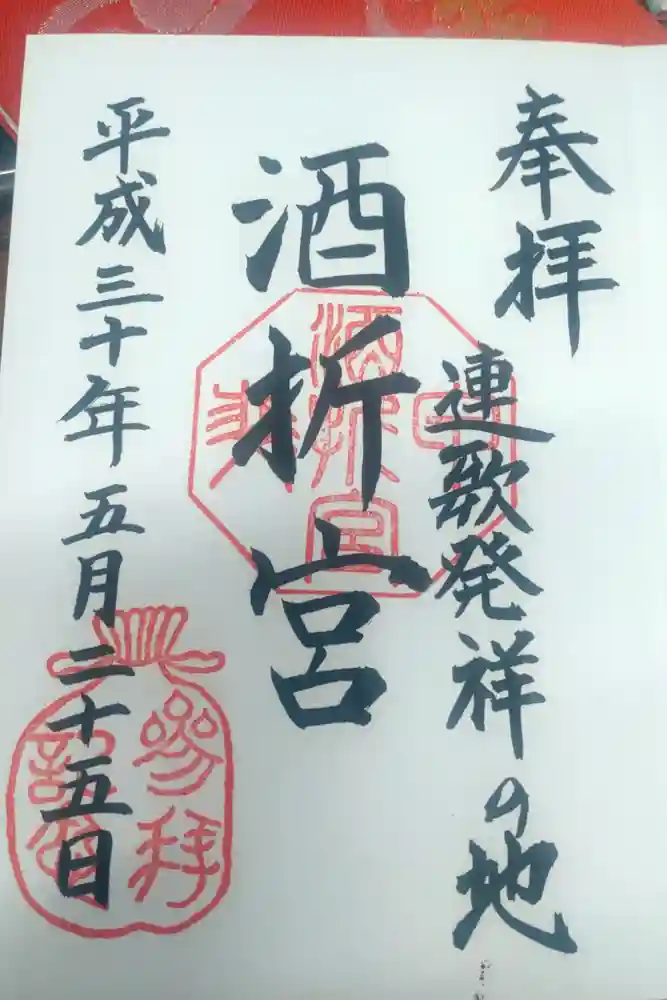 奉拝
連歌発祥の地
酒折宮
平成三十年五月二十五日
酒折宮
参拝
記念